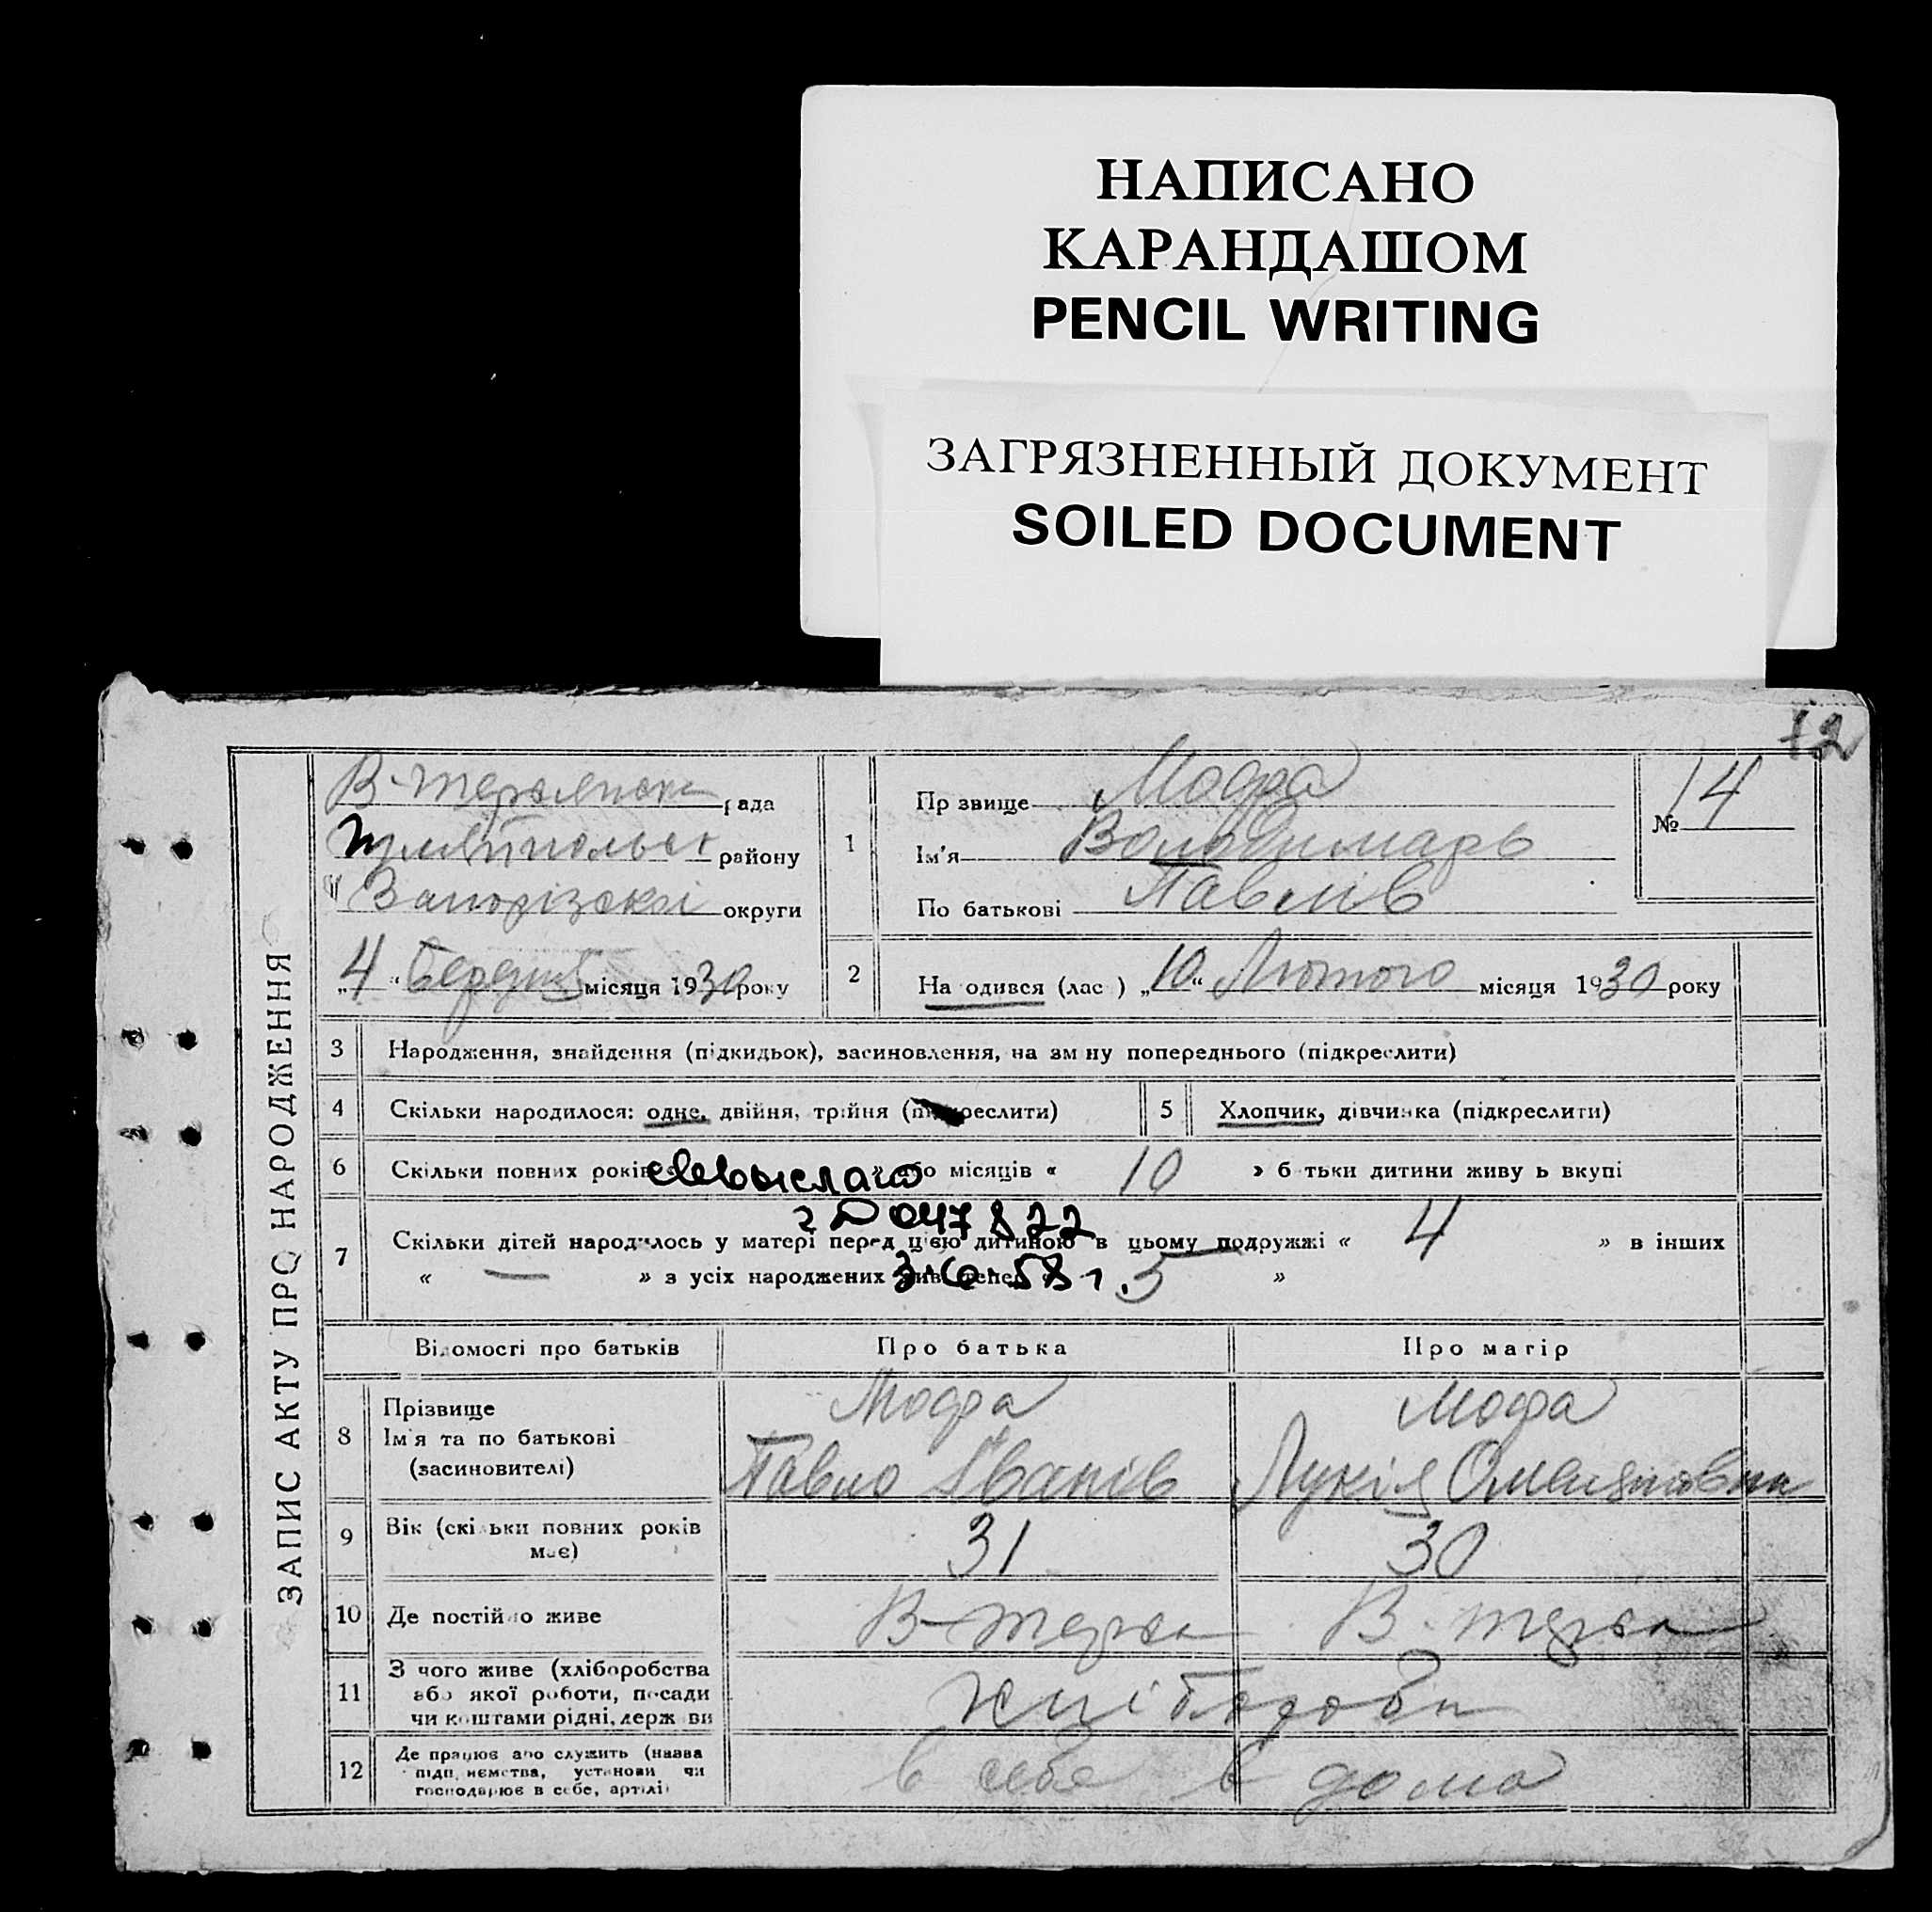 НАПИСАНО
КАРАНДАШОМ
PENCIL WRITING
ЗАГРЯЗНЕННЫЙ ДОКУМЕНТ
SOILED DOCUMENT
12
ЗАПИС АКТУ ПРО НАРОДЖЕННЯ
рада
району
Запорізскої округи
„4“ місяця 1930 року
1
Пр звище Мофа
Ім'я Володимарь
По батькові Павлів
№ 14
2
На одився (лас ) „10“ Лютого місяця 1930 року
3 Народження, знайдення (підкидьок), засиновлення, на зм ну попереднього (підкреслити)
4 Скільки народилося: одне, двійня, трійня (підкреслити)
5 Хлопчик, дівчинка (підкреслити)
6 Скільки повних років » або місяців « 10 » б тьки дитини живу ь вкупі
047822
7 Скільки дітей народилось у матері перед цією дитиною в цьому подружжі « 4 » в інших
« — » з усіх народжених 5 »
3·6·58 г.
Відомості про батьків
Про батька
Про матір
8 Прізвище
Ім'я та по батькові
(засиновителі)
Мофа
Павло Іванів
Мофа
Лукія
9 Вік (скільки повних років
має)
31
30
10 Де постійно живе
В-Терса
В-Терса
11 З чого живе (хліборобства
або якої роботи, посади
чи коштами рідні, держ ви
хліборобы
12 Де працює або служить (назва
підп иємства, установи чи
господарює в себе, артілі)
в себе в дома